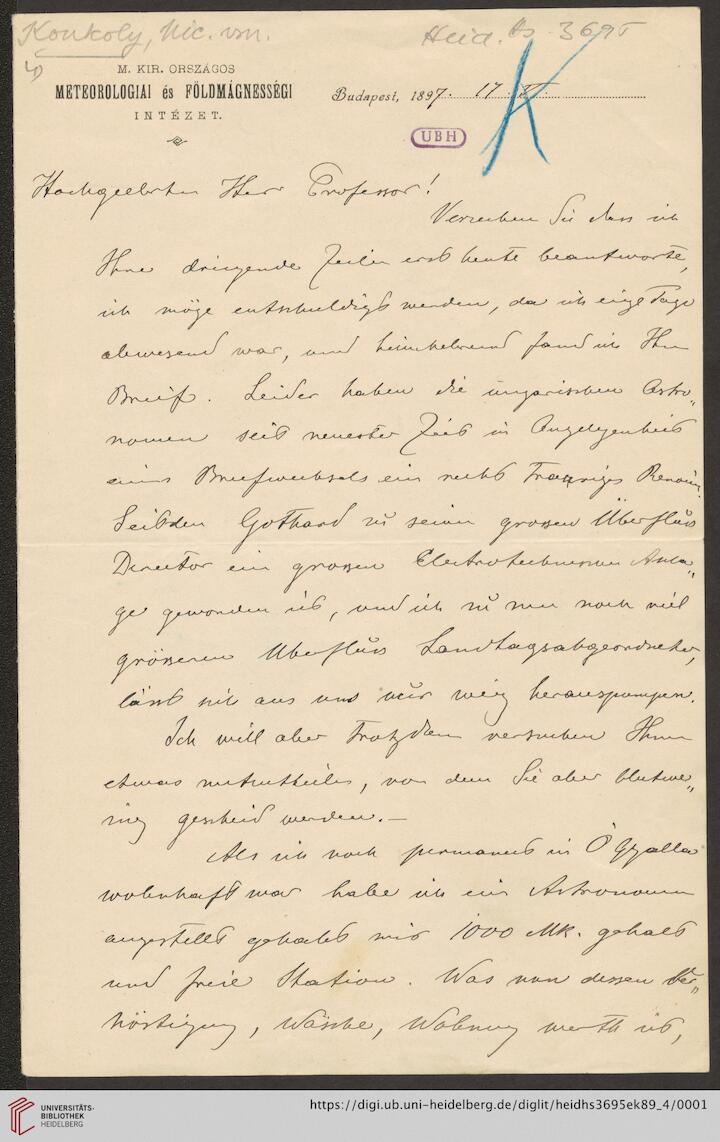 Konkoly, Nic. von.
Heid. Hs. 3695
M. KIR. ORSZÁGOS
METEOROLOGIAI és FÖLDMÁGNESSÉGI
INTÉZET.
Budapest, 1897. 17
UBH
Hochgeehrter Herr Professor!
Verzeihen Sie dass ich
Ihre dringende Zeilen erst heute beantworte,
ich möge entschuldigt werden, da ich einige Tage
abwesend war, und heimkehrend fand ich Ihren
Brief. Leider haben die ungarischen Astro„
nomen seit neuester Zeit in Angelegenheit
eines Briefwechsels ein recht trauriges
Seitdem Gothard zu seinem grossen Überfluss
Director einer grossen Electrotechnischen Anla„
ge geworden ist, und ich zu noch viel
grösseren Überfluss Landtagsabgeordneter,
lässt sich aus uns nur wenig herauspumpen.
Ich will aber trotzdem versuchen Ihnen
etwas mitzutheilen, von dem Sie aber blutwe„
nig gescheid werden. —
Als ich noch permanent in Ó Gyalla
wohnhaft war habe ich ein Astronomen
angestellt gehabt mit 1000 Mk. gehalt
und freie Station. Was nun dessen Ver„
köstigung, Wäsche, Wohnung werth ist,
UNIVERSITÄTS-
BIBLIOTHEK
HEIDELBERG
https://digi.ub.uni-heidelberg.de/diglit/heidhs3695ek89_4/0001